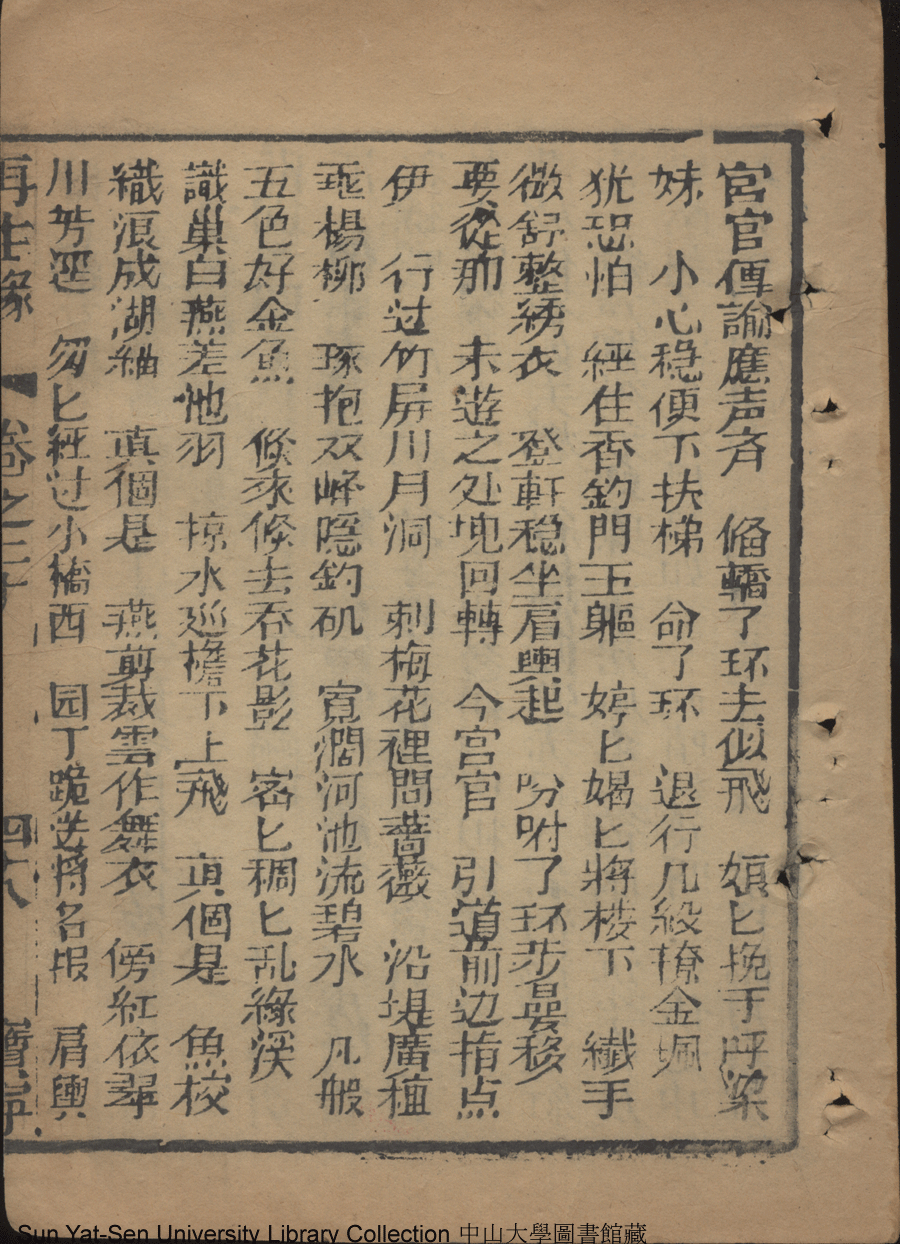 宮官傳諭應声斉　俻轎了环去似飛　娘匕挽手呼梁
妹　小心稳便下扶梯　命了环　退行几级撩金珮
犹恐怕　経住香釣門玉軀　婷匕嬝匕將楼下　纎手
微舒整綉衣　登軒稳坐肩輿起　吩咐了环步晏移
要從那　未遊之处塊回轉　今宫官　引道前边指点
伊　行过竹屏川月洞　刺梅花裡問薔薇　沿堤廣種
乖楊柳　琢抱双峰隱釣矶　寛濶河池流碧水　凡般
五色好金魚　倏來倏去吞花影　密匕稠匕乱綠溪
識巢白燕差他羽　掠水巡檐下上飛　真個是　魚梭
織浪成湖紬　真個是　燕剪裁雲作舞衣　傍紅依翠
川芳逕　匆匕経过小橋西　园丁跪送將名报　肩輿
再生緣　卷之二十　四十八　寶寧
Sun Yat-Sen University Library Collection 中山大學圖書館藏